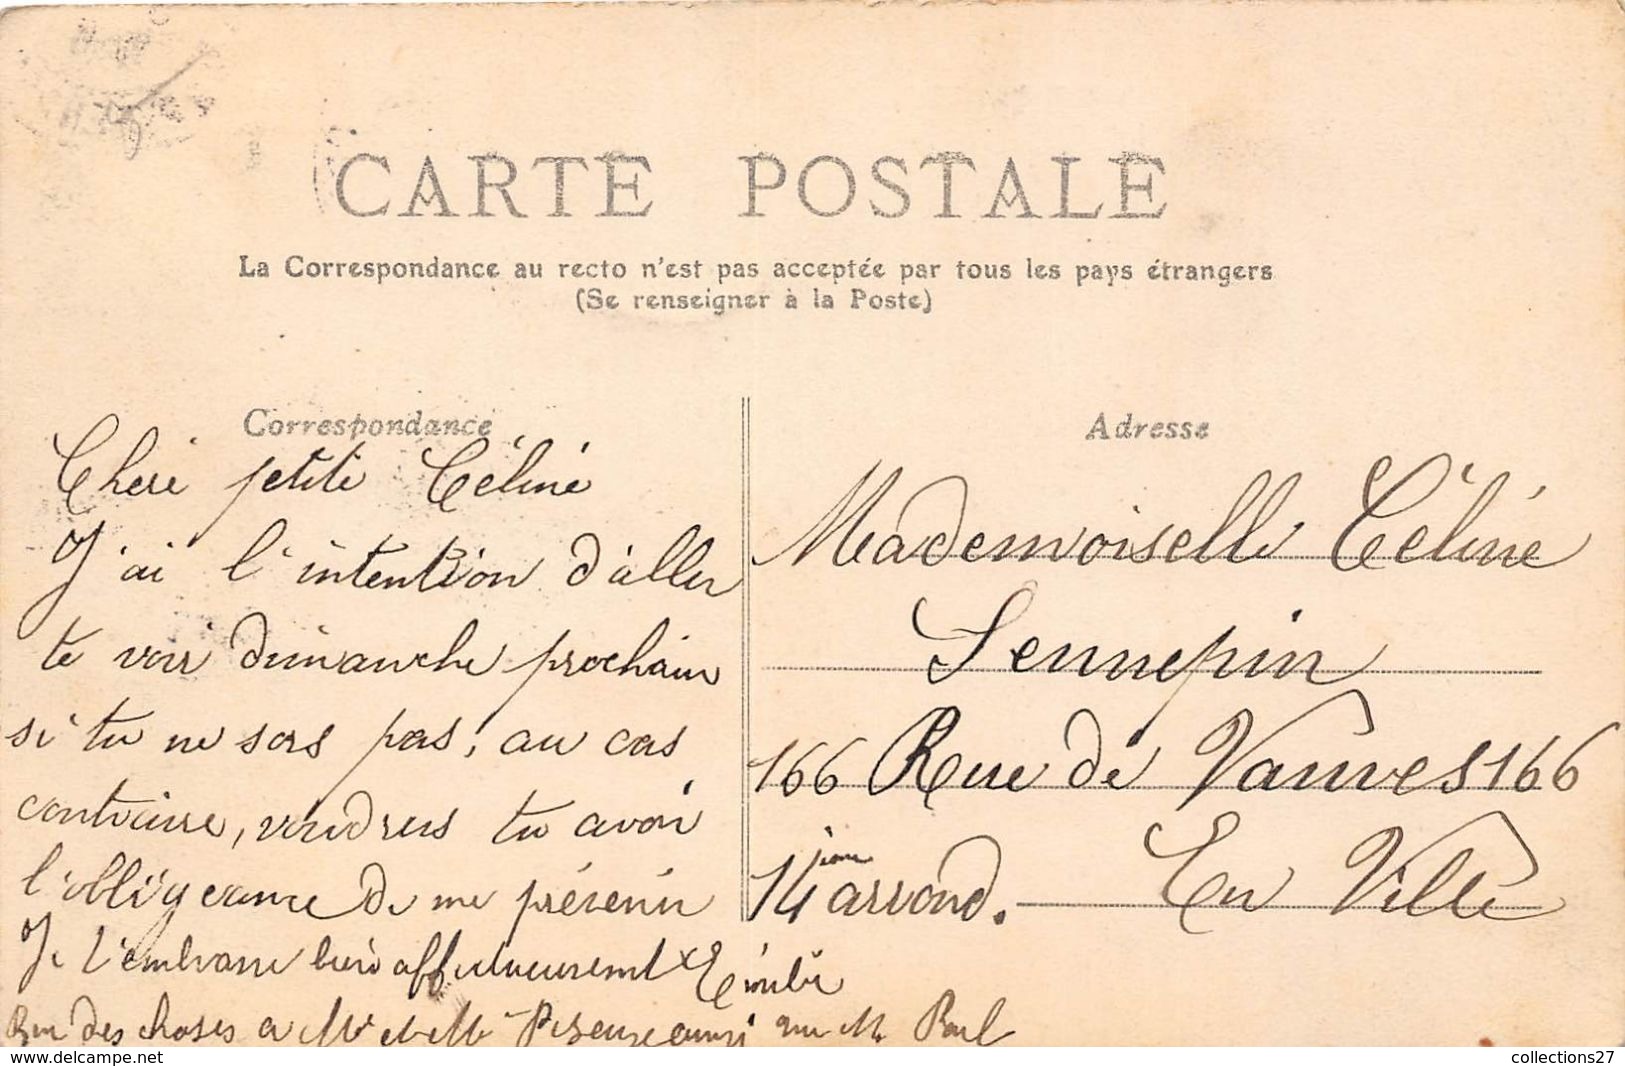 CARTE POSTALE
La Correspondance au recto n'est pas acceptée par tous les pays étrangers
(Se renseigner à la Poste)
Correspondance
Chère petite Céline
J'ai l'intention d'aller
te voir dimanche prochain
si tu ne sors pas, au cas
contraire, voudrais tu avoir
l'obligeance de me prévenir
Je t'embrasse bien affectueusement
Bien des choses a Mr et Mme ainsi que M. Paul
Adresse
Mademoiselle Céline
Sennepin
166 Rue de Vanves 166
14ième arrond. En Ville
collections27